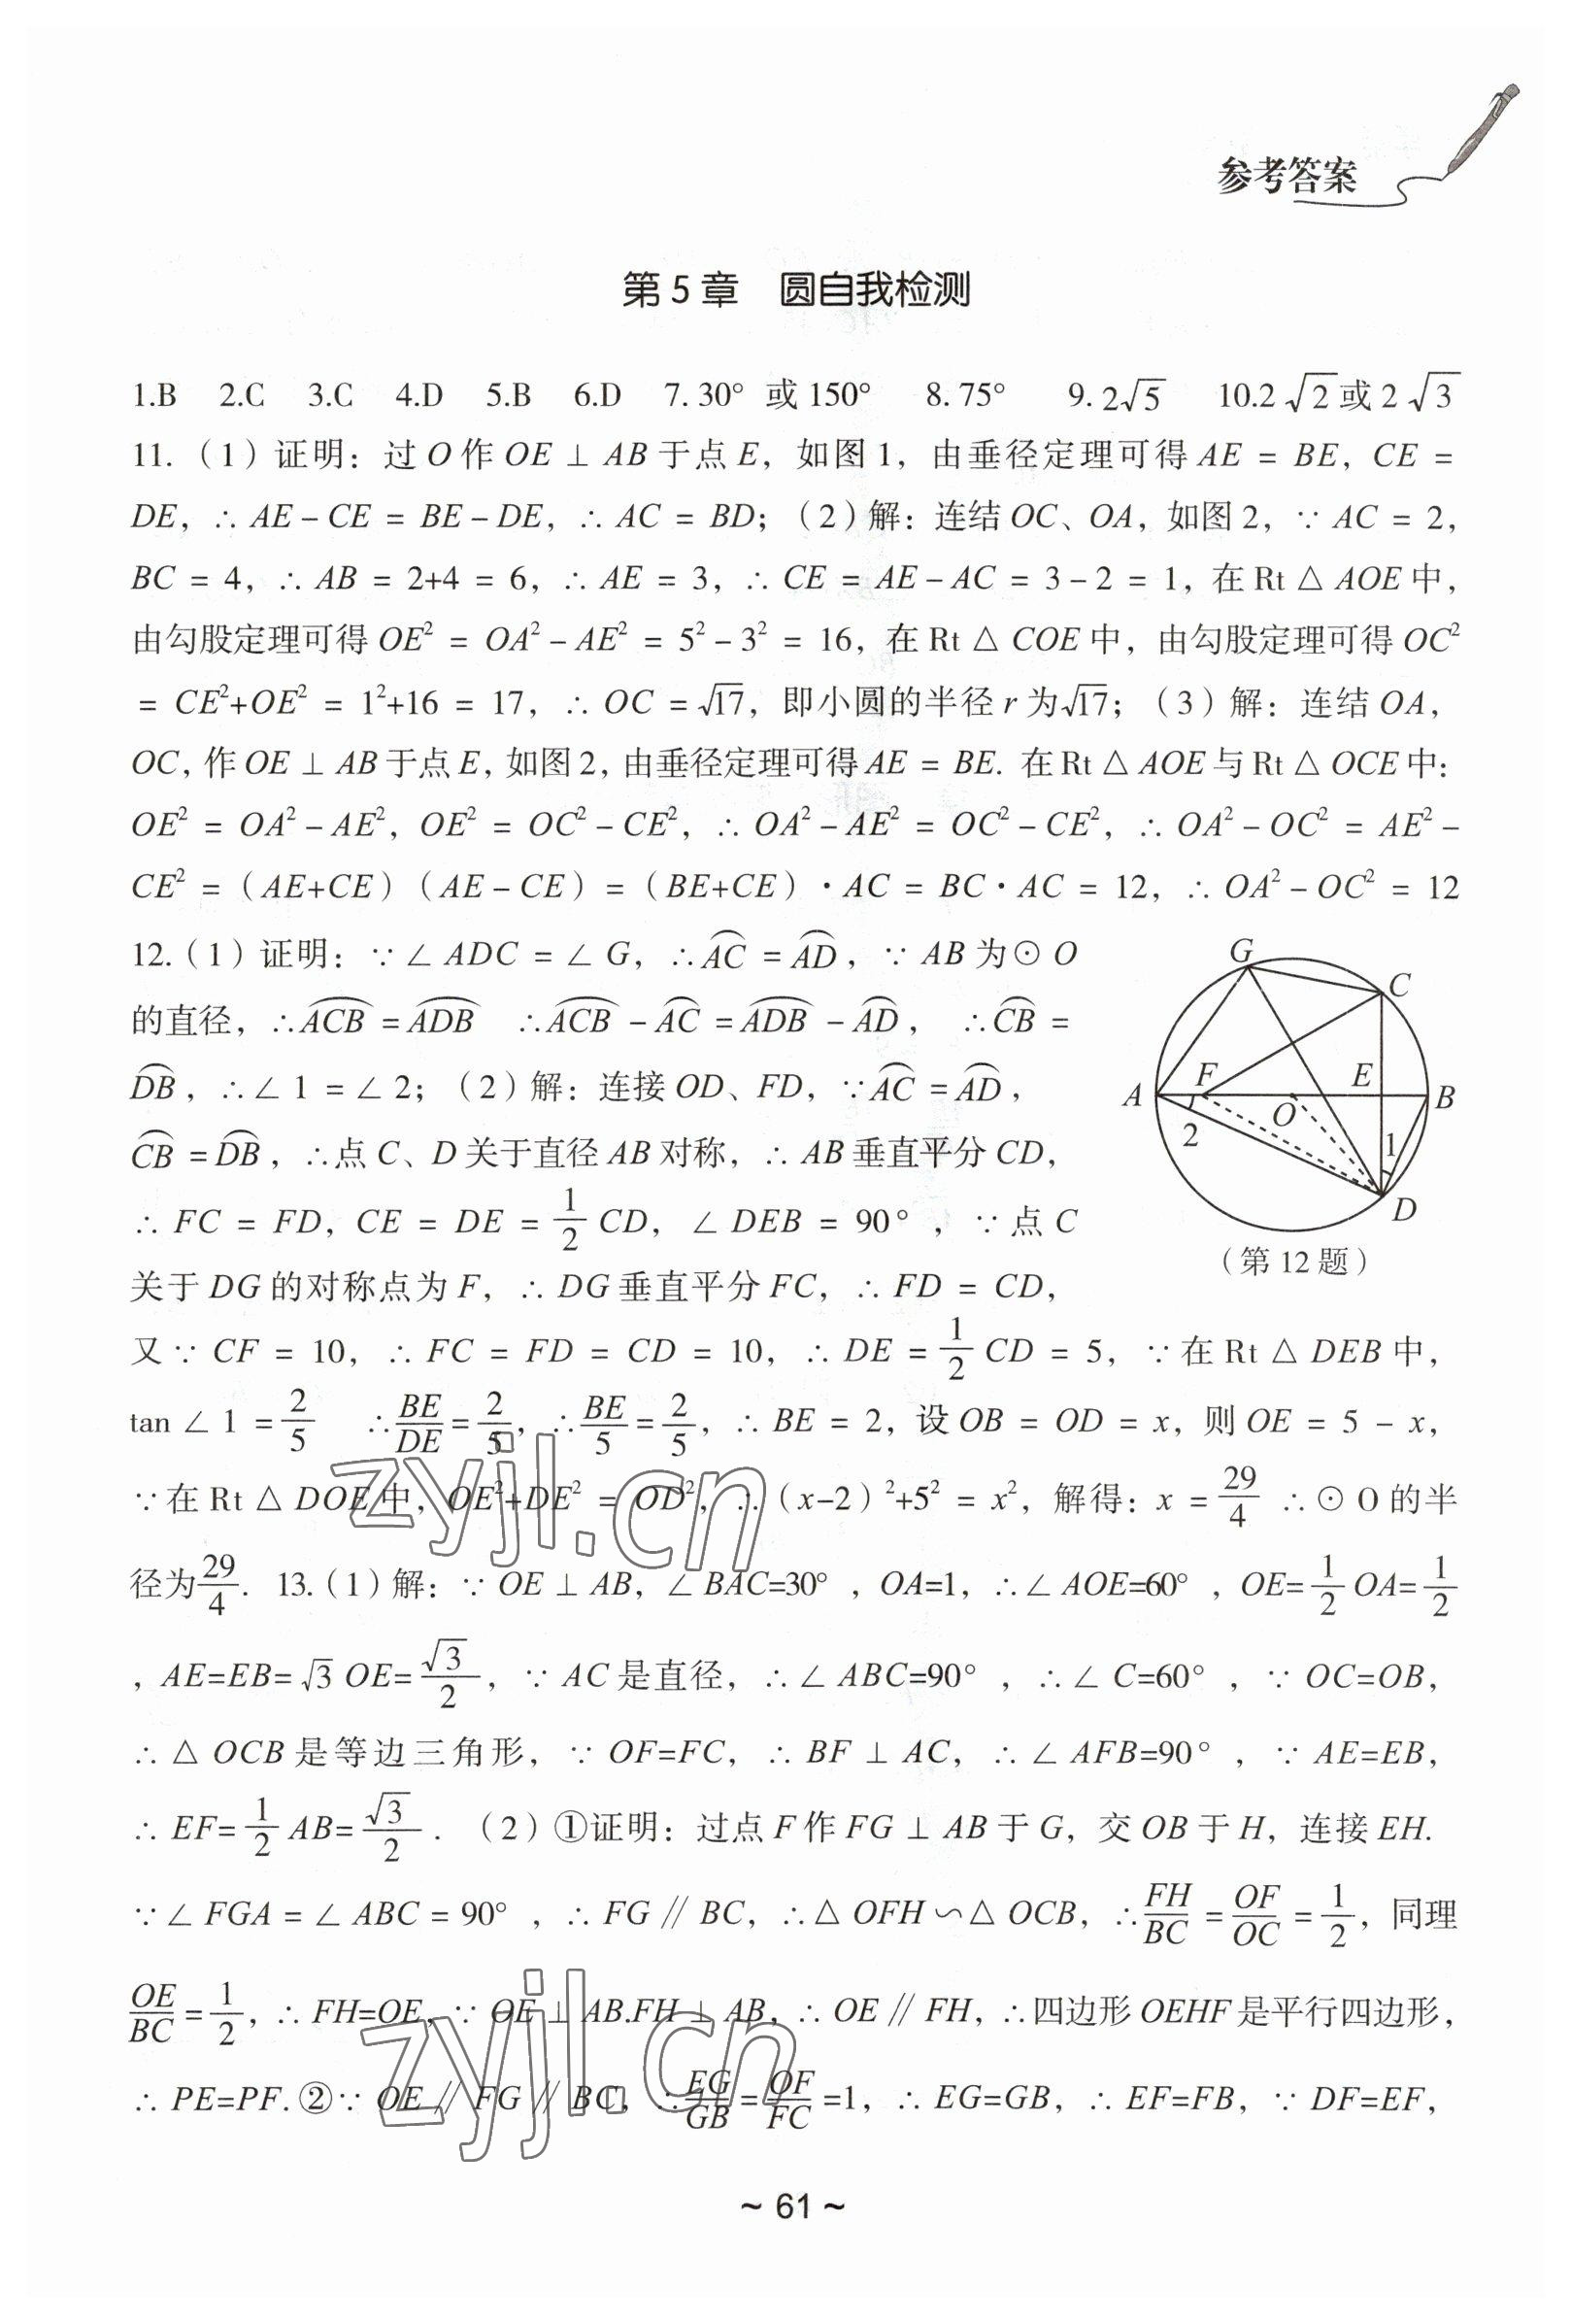 参考答案
第5章 圆自我检测
1.B 2.C 3.C 4.D 5.B 6.D 7.30° 或150° 8.75° 9.2√5 10.2√2或2√3
11.（1）证明：过O作OE⊥AB于点E，如图1，由垂径定理可得AE = BE，CE =
DE，∴ AE－CE = BE－DE，∴ AC = BD；（2）解：连结OC、OA，如图2，∵ AC = 2，
BC = 4，∴ AB = 2+4 = 6，∴ AE = 3，∴ CE = AE－AC = 3－2 = 1，在Rt△AOE中，
由勾股定理可得OE² = OA²－AE² = 5²－3² = 16，在Rt△COE中，由勾股定理可得OC²
= CE²+OE² = 1²+16 = 17，∴ OC = √17，即小圆的半径r为√17；（3）解：连结OA，
OC，作OE⊥AB于点E，如图2，由垂径定理可得AE = BE. 在Rt△AOE与Rt△OCE中：
OE² = OA²－AE²，OE² = OC²－CE²，∴ OA²－AE² = OC²－CE²，∴ OA²－OC² = AE²－
CE² =（AE+CE）（AE－CE）=（BE+CE）·AC = BC·AC = 12，∴ OA²－OC² = 12
12.（1）证明：∵∠ADC = ∠G，∴⌒AC = ⌒AD，∵ AB为⊙O
的直径，∴⌒ACB = ⌒ADB ∴⌒ACB－⌒AC = ⌒ADB－⌒AD， ∴⌒CB =
⌒DB，∴∠1 = ∠2；（2）解：连接OD、FD，∵⌒AC = ⌒AD，
⌒CB = ⌒DB，∴点C、D关于直径AB对称，∴ AB垂直平分CD，
∴ FC = FD，CE = DE = 1/2 CD，∠DEB = 90°，∵点C
关于DG的对称点为F，∴ DG垂直平分FC，∴ FD = CD，
G
C
A
F
E
B
O
2
1
D
（第12题）
又∵ CF = 10，∴ FC = FD = CD = 10，∴ DE = 1/2 CD = 5，∵在Rt△DEB中，
tan∠1 = 2/5 ∴BE/DE = 2/5，∴BE/5 = 2/5，∴ BE = 2，设OB = OD = x，则OE = 5－x，
∵在Rt△DOE中，OE²+DE² = OD²，∴（x－2）²+5² = x²，解得：x = 29/4 ∴⊙O的半
径为29/4. 13.（1）解：∵ OE⊥AB，∠BAC=30°，OA=1，∴∠AOE=60°，OE=1/2 OA=1/2
，AE=EB=√3 OE=√3/2，∵ AC是直径，∴∠ABC=90°，∴∠C=60°，∵ OC=OB，
∴△OCB是等边三角形，∵ OF=FC，∴ BF⊥AC，∴∠AFB=90°，∵ AE=EB，
∴ EF=1/2 AB=√3/2.（2）①证明：过点F作FG⊥AB于G，交OB于H，连接EH.
∵∠FGA = ∠ABC = 90°，∴ FG∥BC，∴△OFH∽△OCB，∴FH/BC = OF/OC = 1/2，同理
OE/BC = 1/2，∴ FH=OE，∵ OE⊥AB.FH⊥AB，∴ OE∥FH，∴四边形OEHF是平行四边形，
∴ PE=PF.②∵ OE∥FG∥BC，∴EG/GB = OF/FC =1，∴ EG=GB，∴ EF=FB，∵ DF=EF，
zyjl.cn
zyjl.cn
~ 61 ~